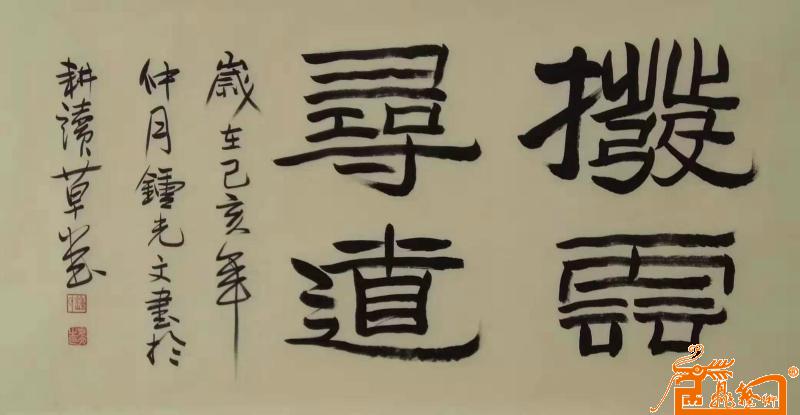 撥雲
尋道
歲在己亥年
仲月鐘光文書於
耕讀草堂